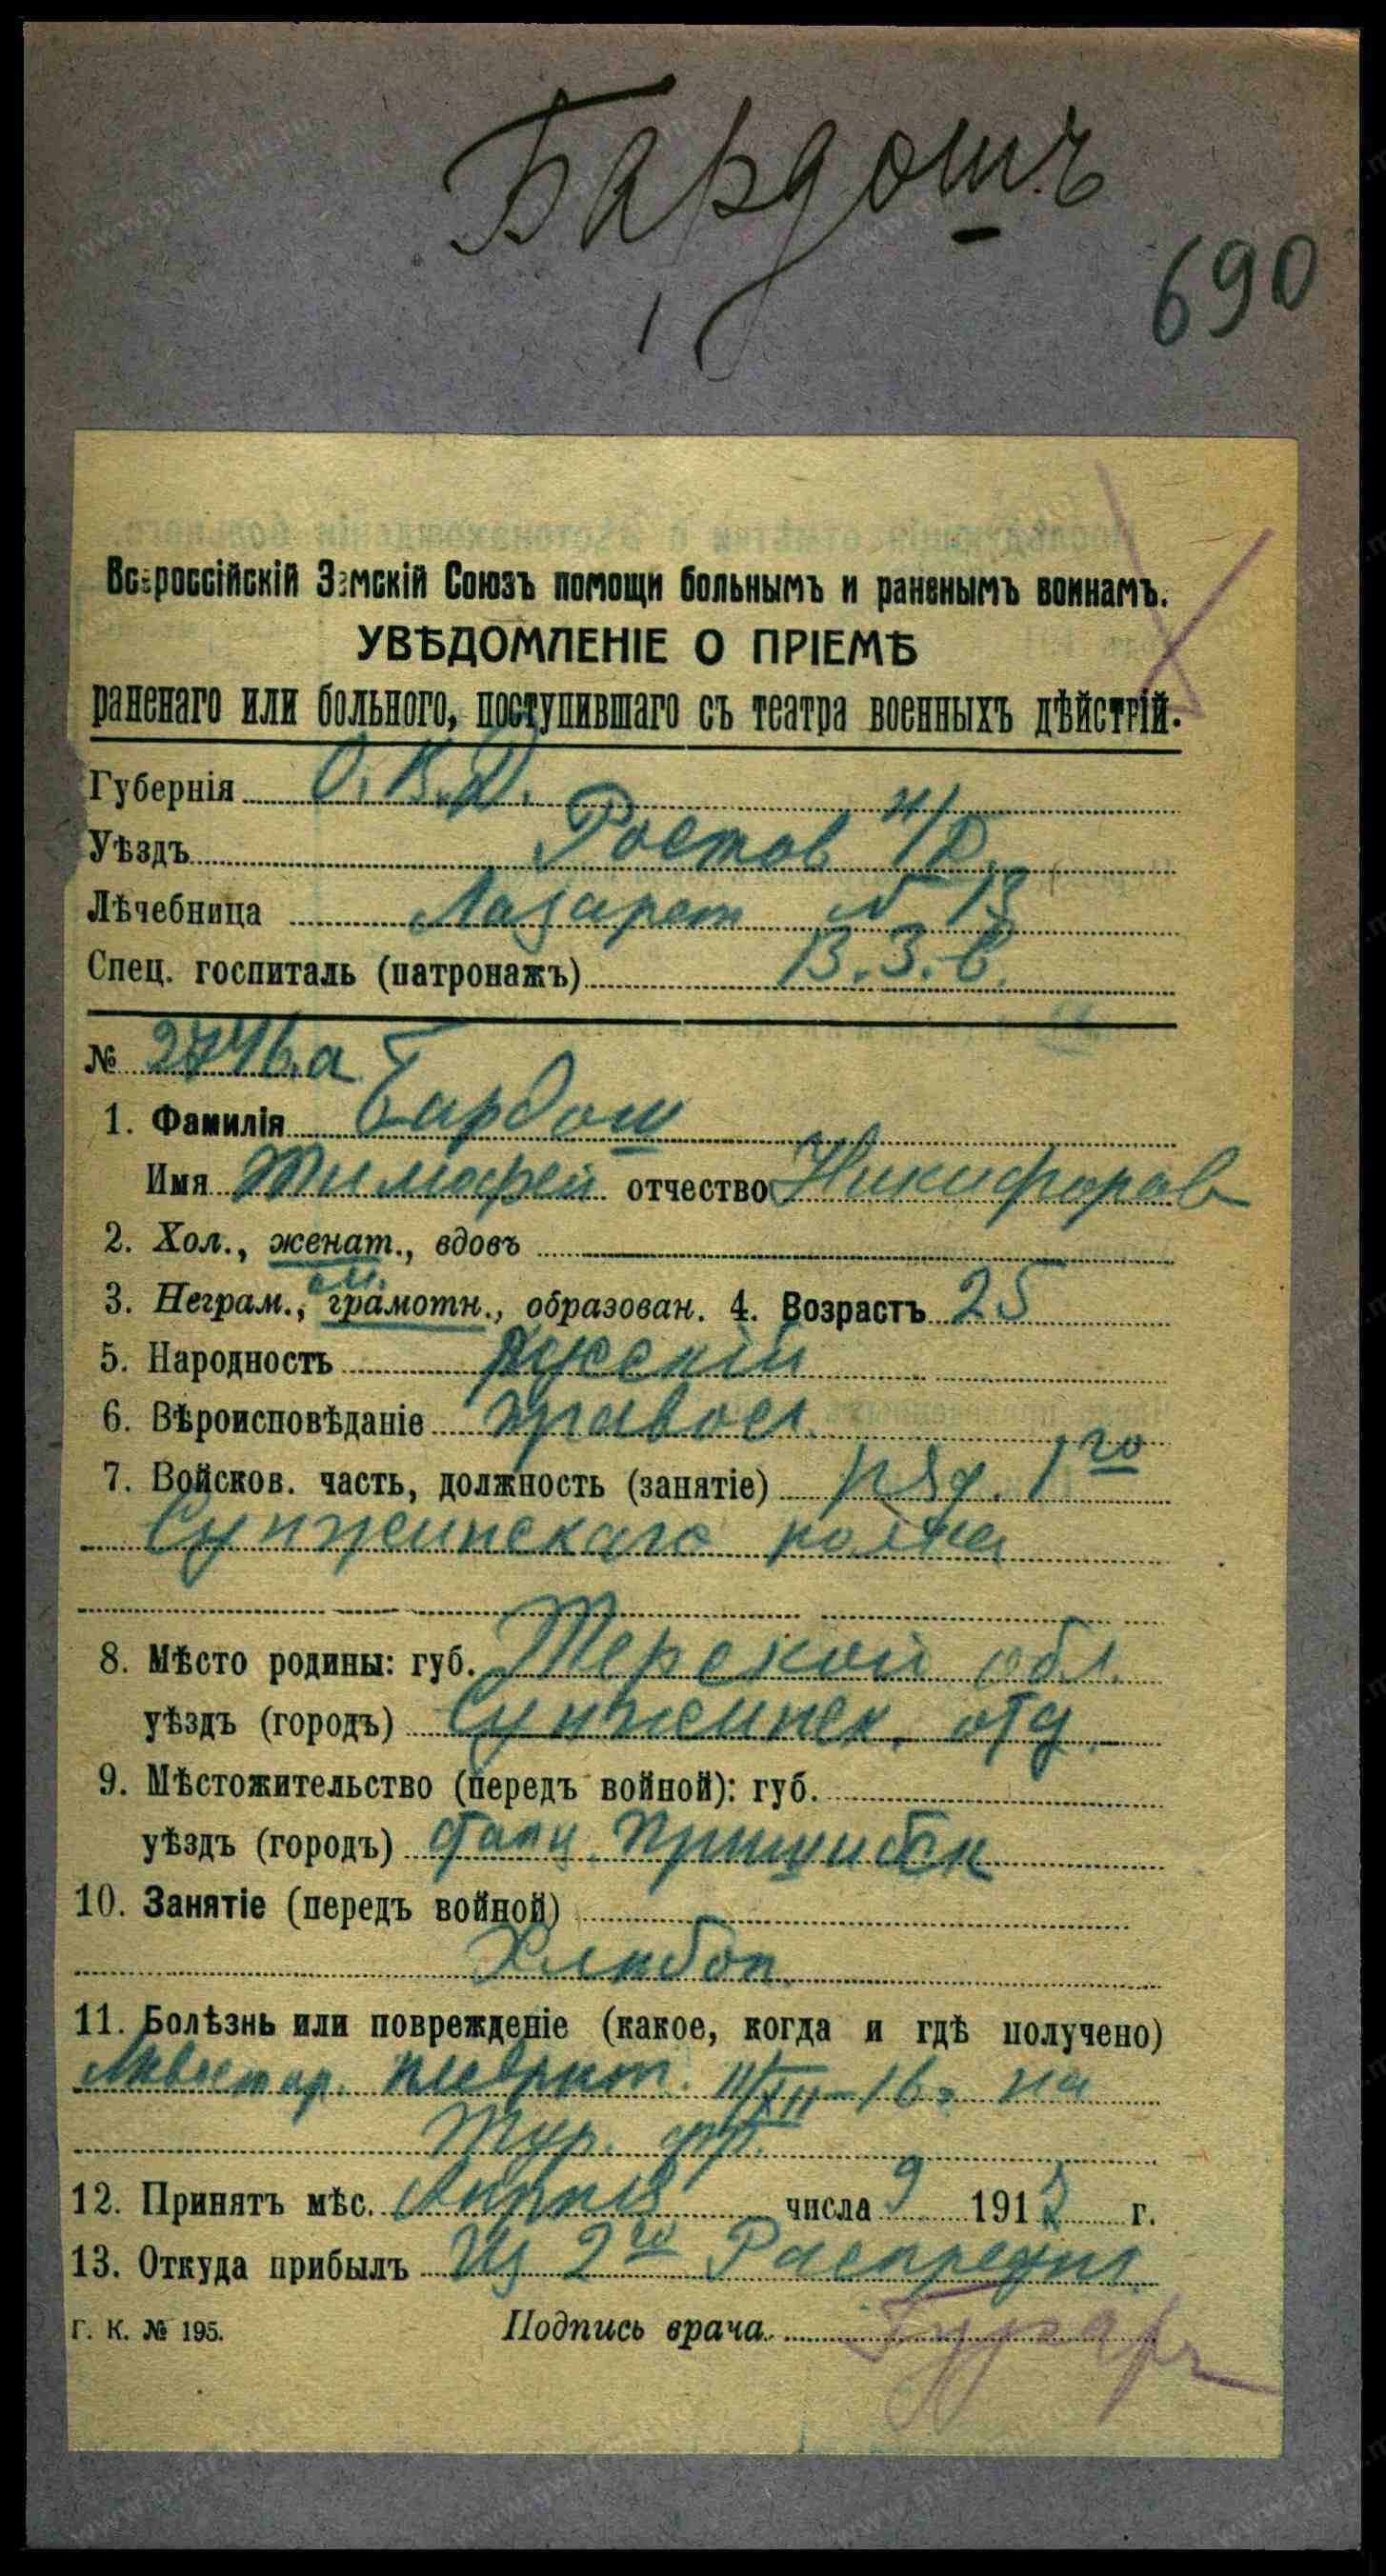 Бардошъ
690
Всероссійскій Земскій Союзъ помощи больнымъ и раненымъ воинамъ.
УВѢДОМЛЕНІЕ О ПРІЕМѢ
раненаго или больного, поступившаго съ театра военныхъ дѣйствій.
Губернія О.В.Д.
Уѣздъ Ростов н/Д.
Лѣчебница Лазарет № 13
Спец. госпиталь (патронажъ) В.З.С.
№
1. Фамилія Бардош
Имя Тимофей отчество Никифоров
2. Хол., женат., вдовъ
3. Неграм., грамотн., образован. 4. Возрастъ 25
5. Народность русскій
6. Вѣроисповѣданіе правосл.
7. Войсков. часть, должность (занятіе) ряд. 1го
Сунженскаго полка
8. Мѣсто родины: губ. Терской обл.
уѣздъ (городъ) Сунженск. отд.
9. Мѣстожительство (передъ войной): губ.
уѣздъ (городъ) стан.
10. Занятіе (передъ войной)
Хлебоп.
11. Болѣзнь или поврежденіе (какое, когда и гдѣ получено)
плеврит. 11/XII-16г на
Тур. фр.
12. Принятъ мѣс. Апрѣля числа 9 191 г.
13. Откуда прибылъ Из 2го Распредил.
Г. К. № 195. Подпись врача.